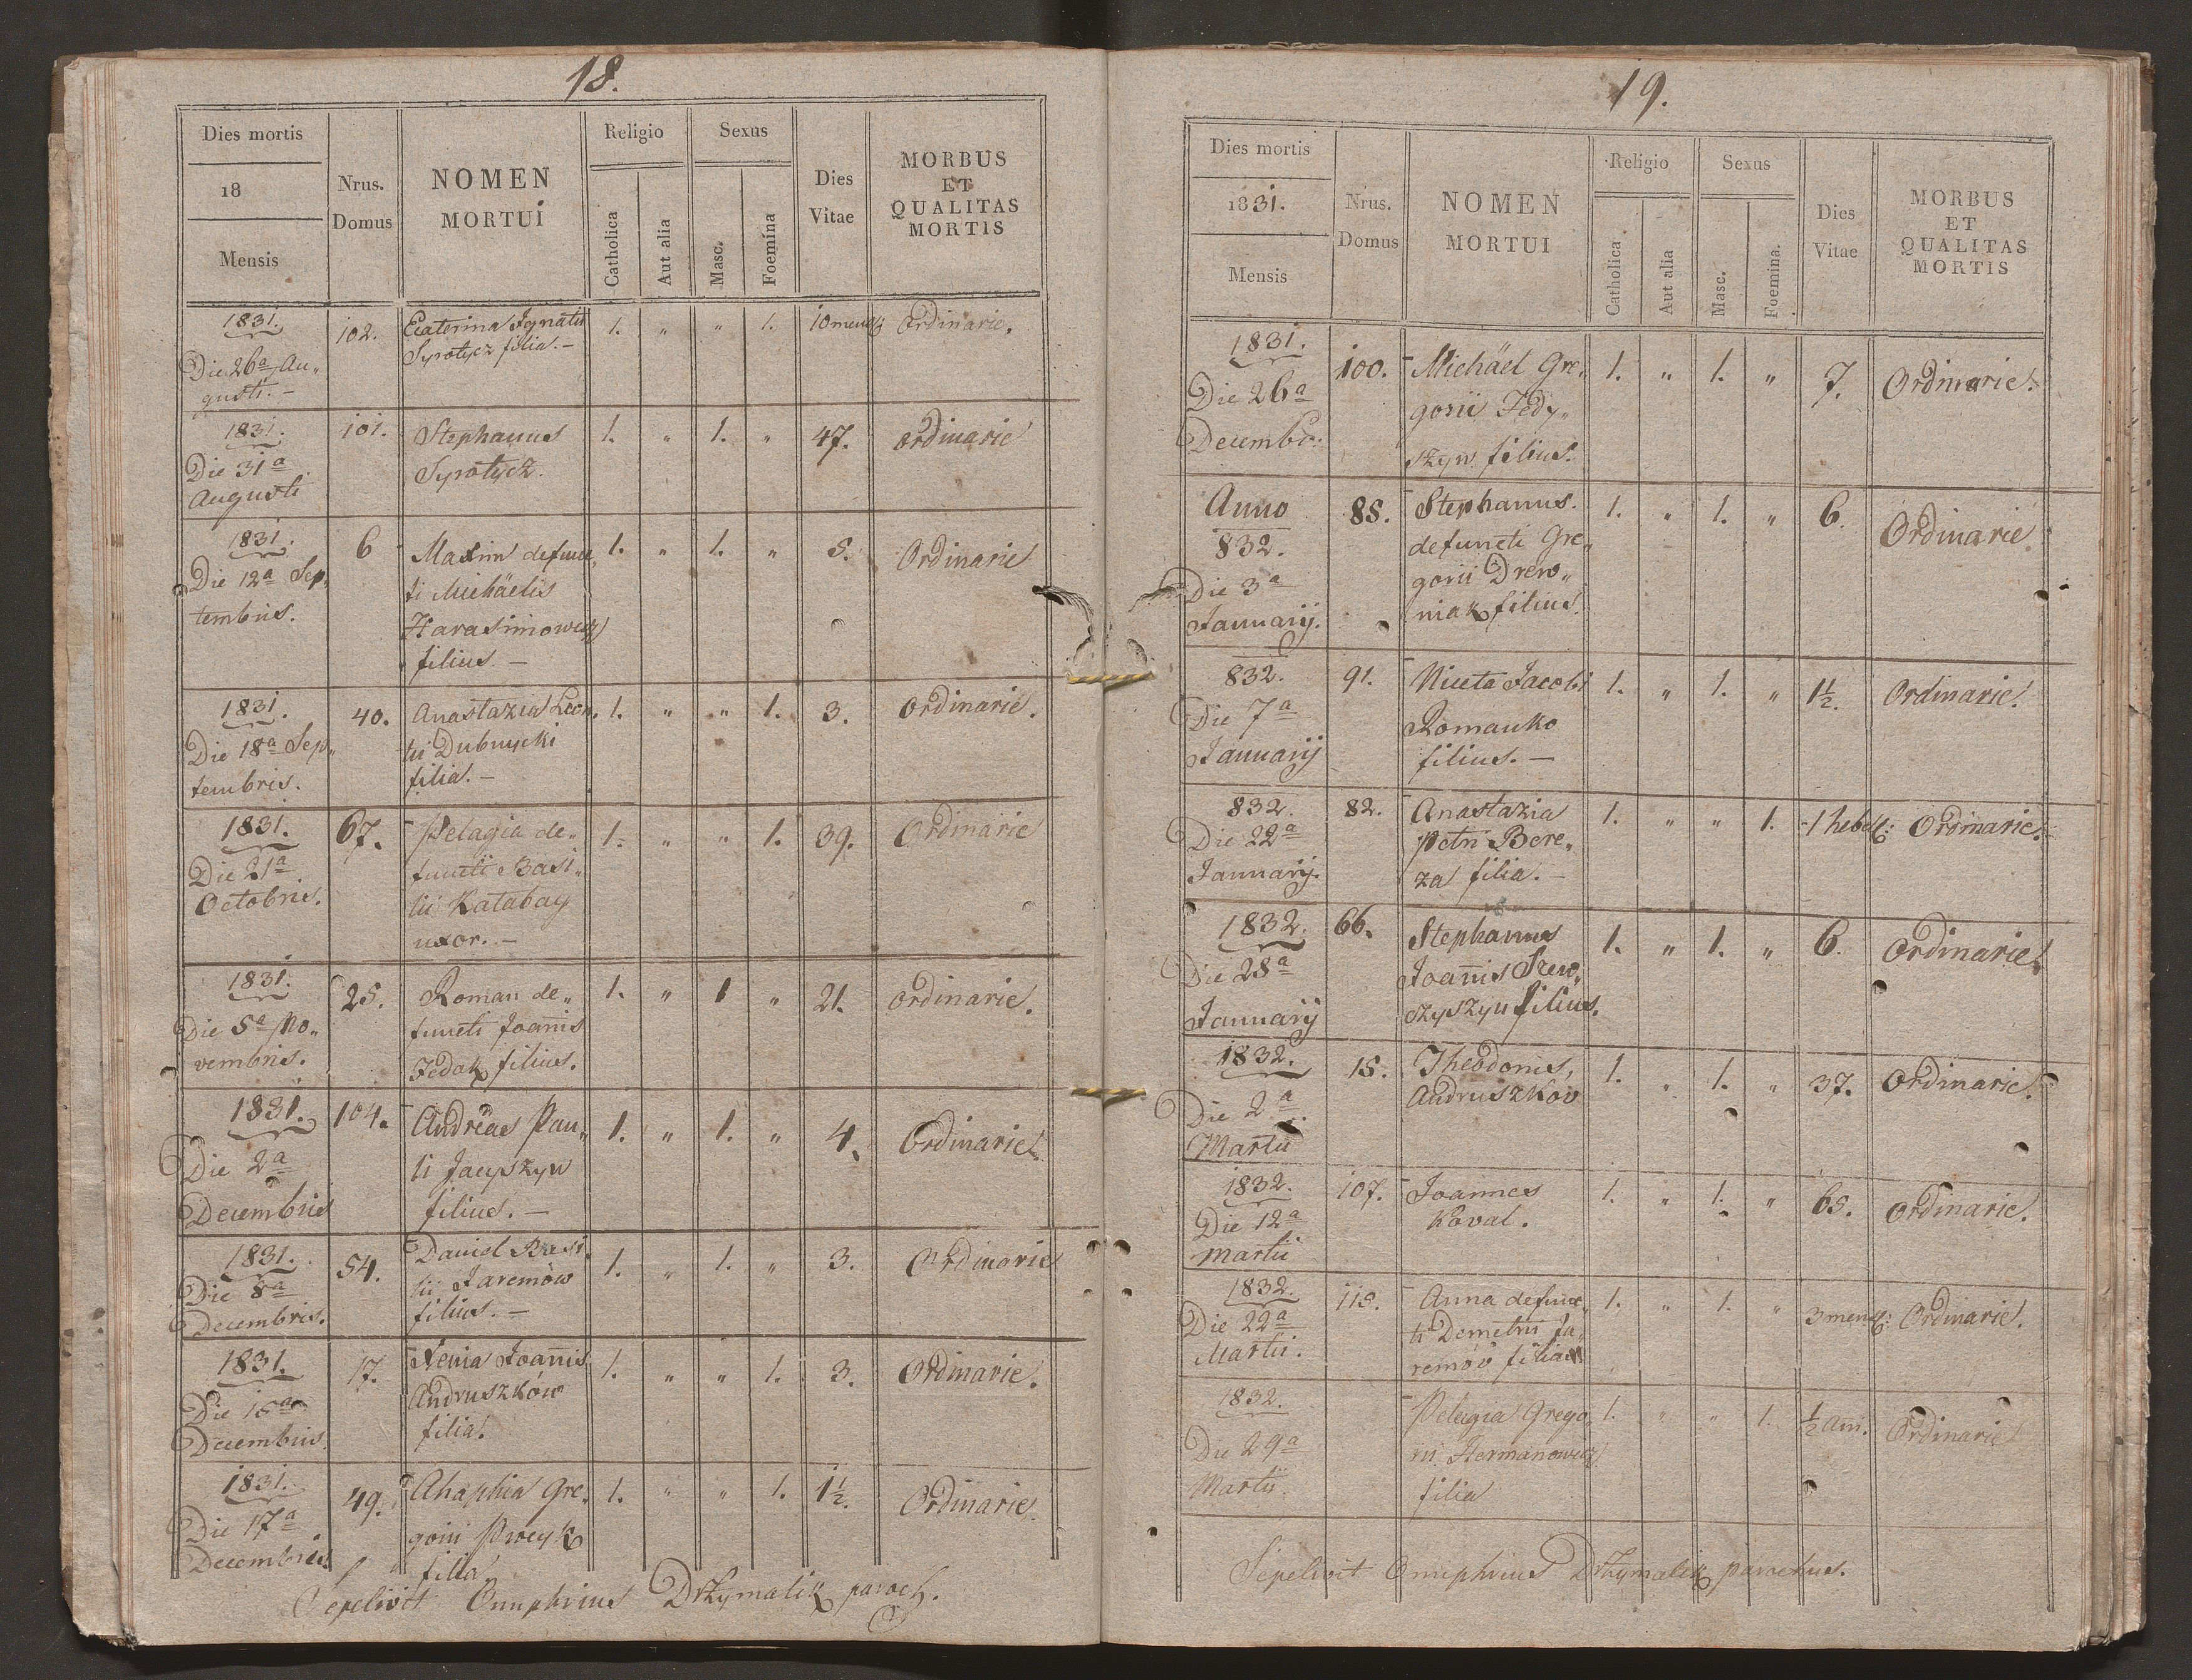 18.
Dies mortis
18
Mensis
Nrus.
Domus
NOMEN
MORTUI
Religio
Catholica
Aut alia
Sexus
Masc.
Foemina
Dies
Vitae
MORBUS
ET
QUALITAS
MORTIS
1831.
Die 26a Au„
gusti. –
102.
Ecaterina Ignatii
Syrotycz filia. –
1. „ „ 1. 10 mens: Ordinarie.
1831.
Die 31a
Augusti
101.
Stephanus
Syrotycz.
1. „ 1. „ 47. ordinarie
1831.
Die 12a Sep„
tembris.
6
Maxim defunc„
ti Michäelis
Harasimowicz
filius. –
1. „ 1. „ 5. Ordinarie
1831.
Die 18a Sep„
tembris.
40.
Anastazia Leon„
tii Dubnycki
filia. –
1. „ „ 1. 3. Ordinarie.
1831.
Die 21a
Octobris.
67.
Pelagia de„
functi Basi„
lii Katabay
uxor. –
1. „ „ 1. 39. Ordinarie
1831.
Die 5a No„
vembris.
25.
Roman de„
functi Joannis
Fedak filius.
1. „ 1 „ 21. ordinarie.
1831.
Die 2a
Decembris
104.
Andreas Pau„
li Jacyszyn
filius. –
1. „ 1. „ 4. Ordinarie.
1831.
Die 8a
Decembris.
54.
Daniel Basi„
lii Jaremów
filius. –
1. „ 1. „ 3. Ordinarie
1831.
Die 15a
Decembris.
17.
Xenia Joannis
Andruszków
filia.
1. „ „ 1. 3. Ordinarie.
1831.
Die 17a
Decembris.
49.
Ahaphia Gre„
gorii
filia.
1. „ „ 1. 1½. Ordinarie.
Sepelivit Onuphrius Drzymalik paroch.
19.
Dies mortis
1831.
Mensis
Nrus.
Domus
NOMEN
MORTUI
Religio
Catholica.
Aut alia
Sexus
Masc.
Foemina.
Dies
Vitae
MORBUS
ET
QUALITAS
MORTIS
1831.
Die 26a
Decembr:
100.
Michäel Gre„
gorii Fedy„
szyn filius.
1. „ 1. „ 7. Ordinarie.
Anno
832.
Die 3a
Januarij.
85.
Stephanus.
defuncti Gre„
gorii Drew„
niak filius.
1. „ 1. „ 6. Ordinarie.
832.
Die 7a
Januarij
91.
Niceta Jacobi
Romanko
filius. –
1. „ 1. „ 1½. Ordinarie.
832.
Die 22a
Januarij.
82.
Anastazia
Petri Bere„
za filia. –
1. „ „ 1. 1 hebd: Ordinarie.
1832.
Die 28a
Januarij
66.
Stephanus
Joannis Szew„
czyszyn filius.
1. „ 1. „ 6. Ordinarie.
1832.
Die 2a
Martii
15.
Theodorus,
Andruszkov
1. „ 1. „ 37. Ordinarie.
1832.
Die 12a
Martii
107.
Joannes
Koval.
1. „ 1. „ 65. Ordinarie.
1832.
Die 22a
Martii.
115.
Anna defunc„
ti Demetrii Ja„
remóv filia
1. „ 1. „ 3 mens: Ordinarie.
1832.
Die 29a
Martii.
Pelagia Grego„
rii Hermanowicz
filia
1. „ „ 1. ½ ani. Ordinarie
Sepelivit Onuphrius Drzymalik parochus.